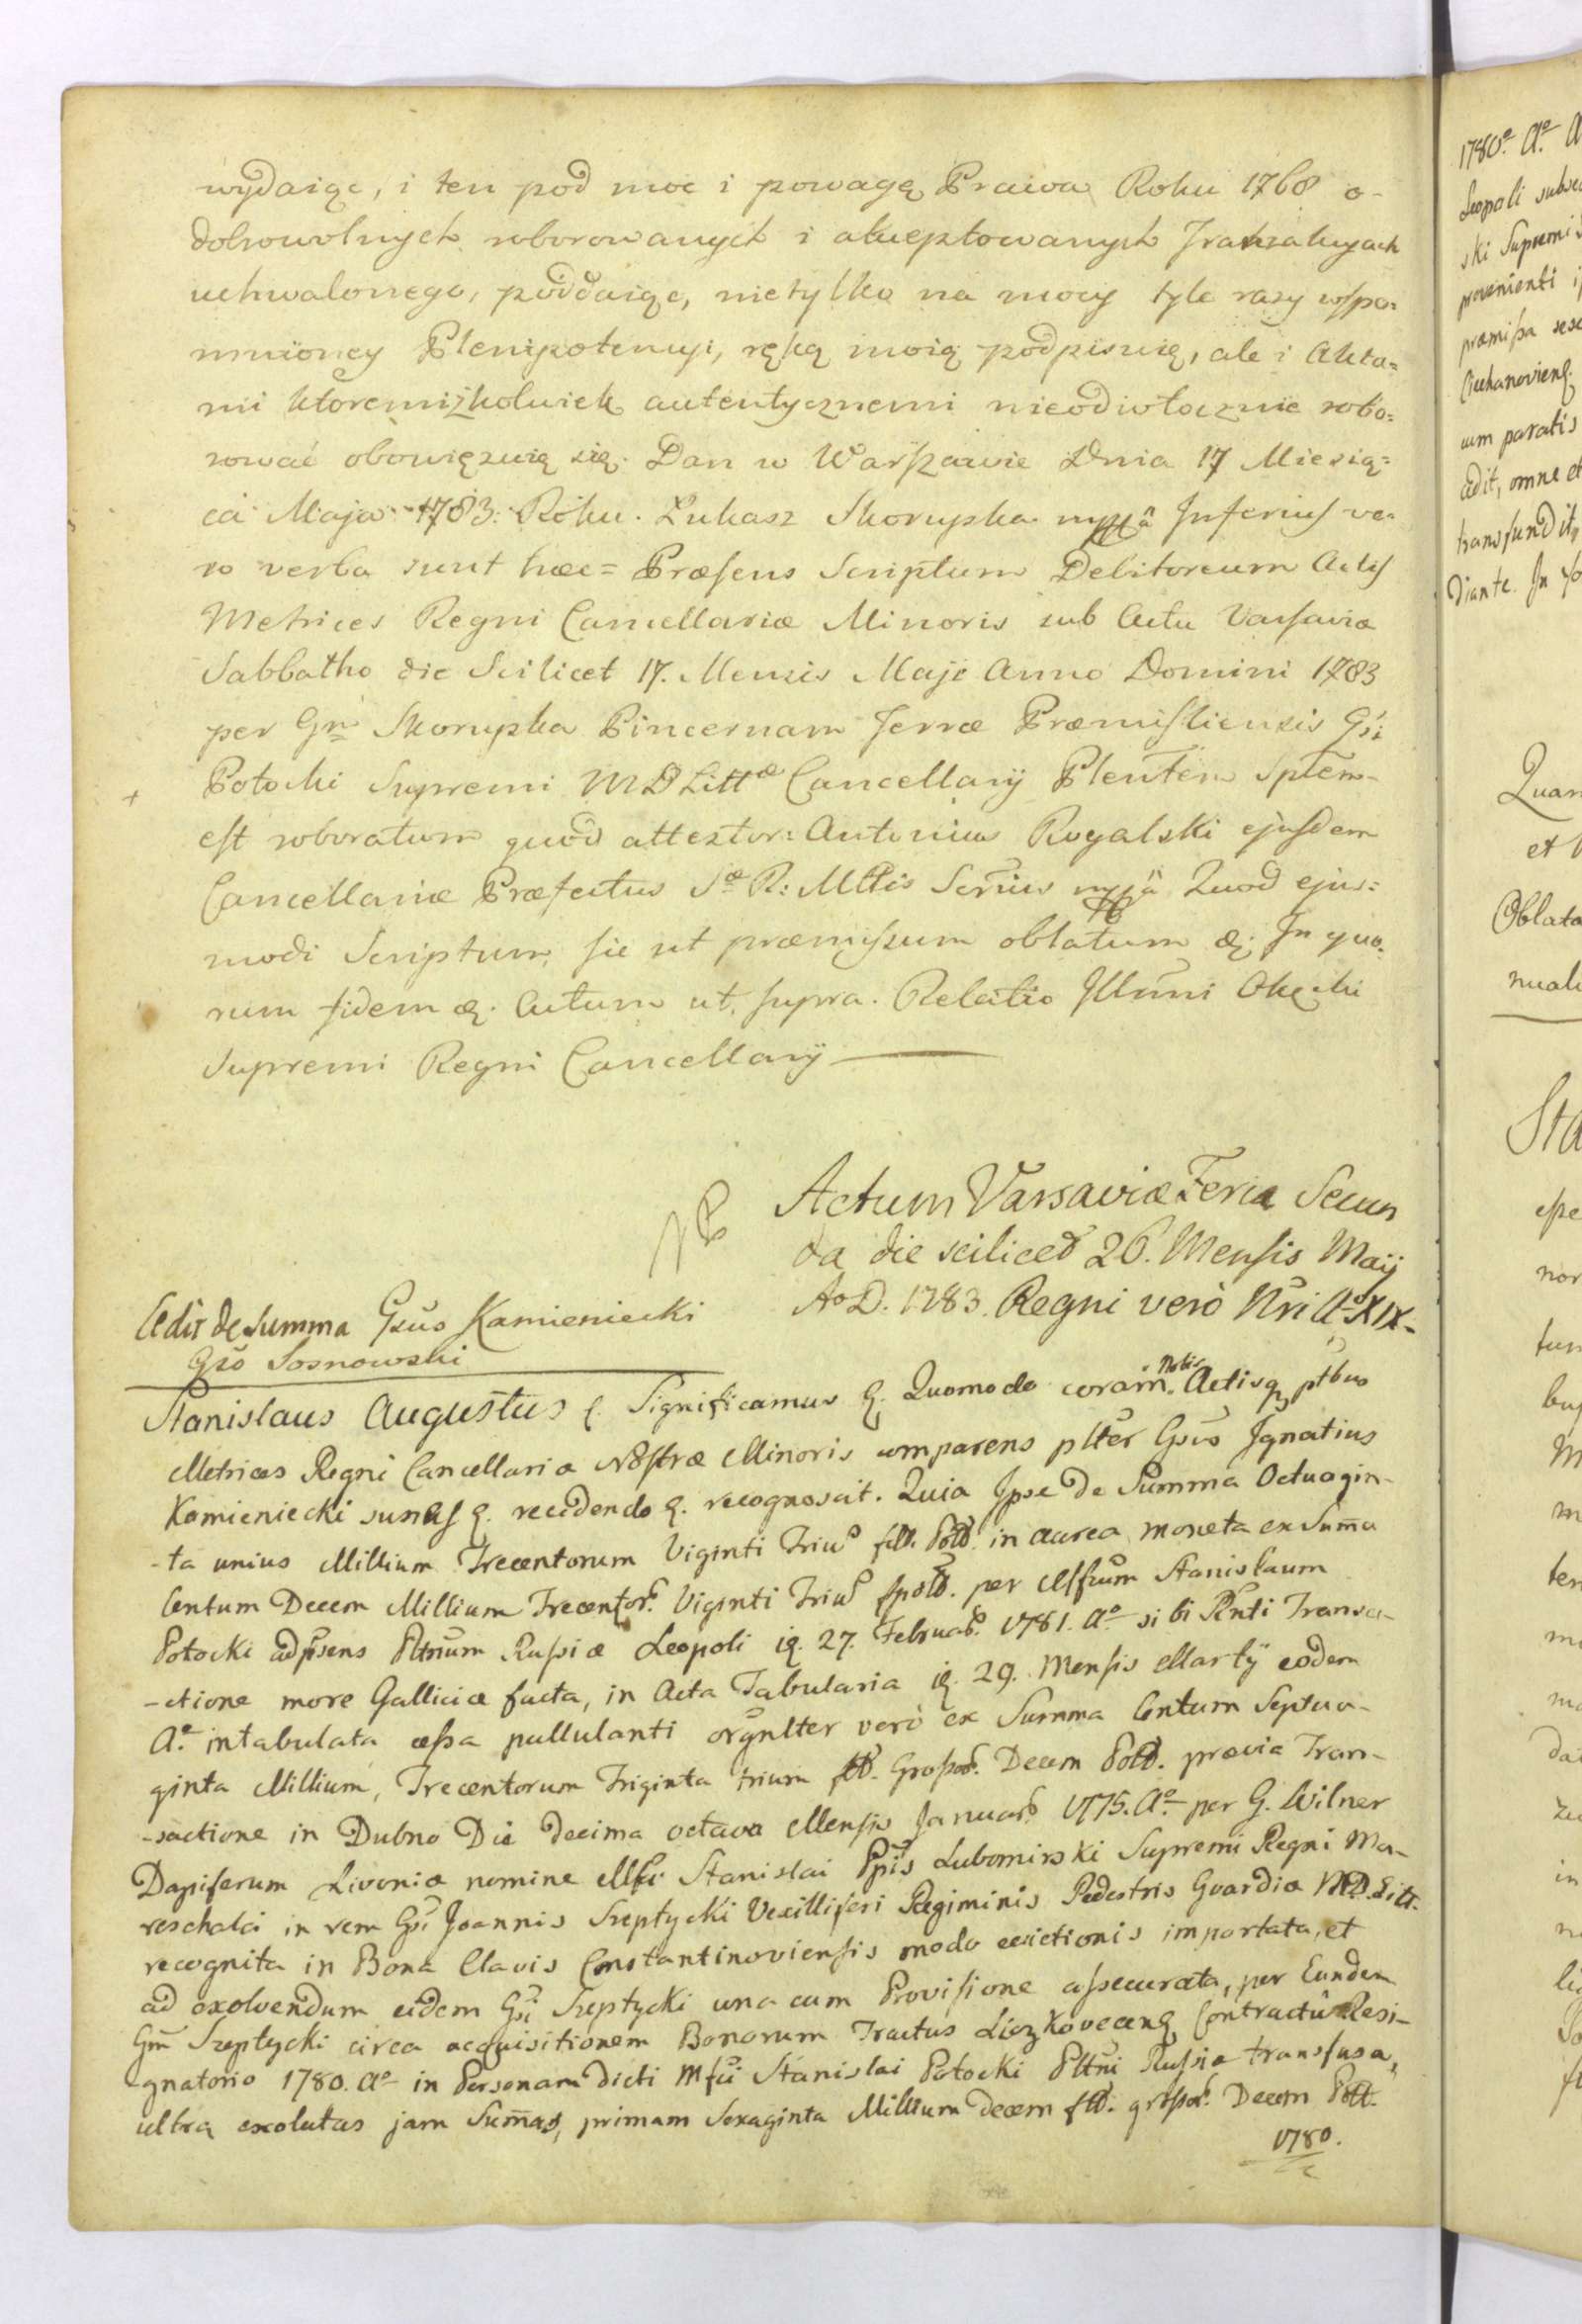 wydaiąc, i ten pod moc i powagę Prawa Roku 1768 o-
dobrowolnych roborowanych i akceptowanych Tranzakcyach
uchwalonego, poddaiąc, nietylko na mocy tyle razy wspo=
mnioney Plenipotencyi, ręką moią podpisuię, ale i Akta=
mi ktoremiżkolwiek autentycznemi nieodwłocznie robo=
rować obowięzuię się. Dan w Warszawie Dnia 17 Miesią=
ca Maja 1783. Roku. Łukasz Skorupka mppâ Inferius ve=
ro verba sunt hæc= Præsens Scriptum Debitoreum Actis
Metrices Regni Cancellariæ Minoris sub Actu Varsaviæ
Sabbatho die Scilicet 17. Mensis Maji Anno Domini 1783
per Gm Skorupka Pincernam Terræ Præmisliensis Gsi
Potocki Supremi M D Litt Cancellarij Plenten Sptem
est roboratum quod attestor: Antonius Rogalski ejusdem
Cancellariæ Præfectus S R: Mttis Scrius mppâ Quod ejus=
modi Scriptum, sic ut præmissum oblatum &. In quo=
rum fidem &. Actum ut supra. Relatio Illmi Okęcki
Supremi Regni Cancellarij
Actum Varsaviæ Feria Secun
da die scilicet 26. Mensis Maij
Ao D. 1783. Regni verò Nri Ao XIX-
Cedit de Summa Gsus Kamieniecki
Gso Sosnowski
Stanislaus Augustus &. Significamus &. Quomodo coram Nobis Actisq ptbus
Metrices Regni Cancellariæ Nostræ Minoris comparens plter Gsus Ignatius
Kamieniecki sanus &. recedendo &. recognoscit. Quia Ipse de Summa Octuagin-
-ta unius Millium Trecentorum Viginti Trium fll. Poll. in aurea moneta ex Suma
Centum Decem Millium Trecentor. Viginti Trium fpoll. per Mfcum Stanislaum
Potocki adpsens Pttnum Russiæ Leopoli i&. 27. Februar. 1781. Ao sibi Pnti Transa-
-ctione more Galliciæ facta, in Acta Tabularia i&. 29. Mensis Martij eodem
Ao intabulata cessa pullulanti orgnlter verò ex Summa Centum Septua-
ginta Millium, Trecentorum Triginta trium fll. Grossor. Decem Poll. prævia Tran-
-sactione in Dubno Die decima octava Mensis Januar. 1775. Ao per G. Wilner
Dapiferum Livoniæ nomine Mfci Stanislai Ppis Lubomirski Supremi Regni Ma-
reschalci in rem Gsi Joannis Szeptycki Vexilliferi Regiminis Pedestris Guardiæ M.D. Litt.
recognita in Bona Clavis Constantinoviensis modo evictionis importata, et
ad exolvendum eidem Gsi Szeptycki una cum Provisione assecurata, per Eundem
Gm Szeptycki circa acquisitionem Bonorum Tractus Contractû Resi-
gnatorio 1780. Ao in Personam dicti Mfci Stanislai Potocki Pttni Russiæ transfusa,
ultra exolutas jam Sumas, primam Sexaginta Millium decem fll. grossor. Decem Poll.
1780.